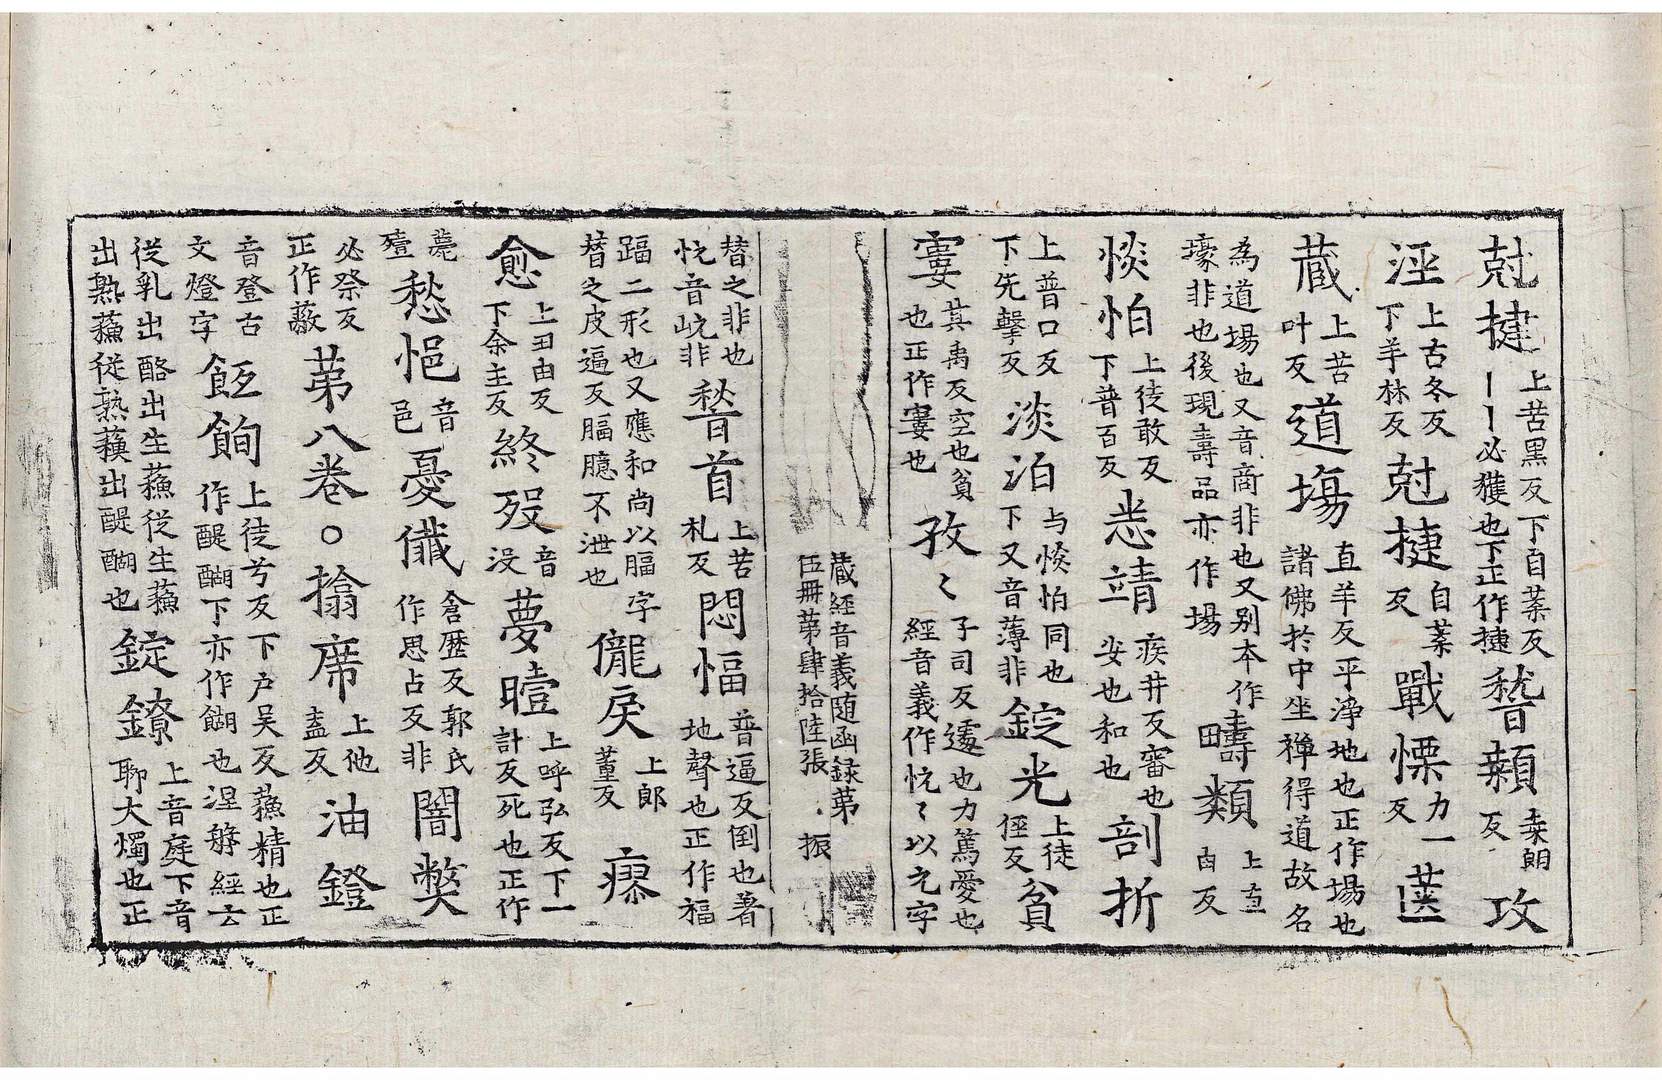 尅揵上苦黑反下自葉反丨丨必獲也下正作㨗䭬顙桒朗反攻
淫上古冬反下羊林反尅㨗自葉反戰慄力一反篋
藏上苦叶反道場直羊反平淨地也正作場也諸佛於中坐禪得道故名
為道場也又音商非也又别本作壕非也後現壽品亦作場疇類上直由反
惔怕上徒敢反下普百反恙靖疾井反審也安也和也剖折
上普口反下先擊反淡泊上与惔怕同也下又音薄非錠光上徒徑反貧
寠其禹反空也貧也正作寠也孜〻子司反遽也力篤愛也經音義作忼〻以亢字
藏經音義随函録苐伍冊苐肆拾陸張 振
替之非也忼音㟁非䭬首上苦札反悶愊普逼反倒也著地聲也正作福
踾二形也又應和尚以腷字替之皮逼反腷臆不泄也儱戾上郎董反瘳
愈上丑由反下余主反終歿音没夢曀上呼弘反下一計反死也正作
薨殪愁悒音邑憂㦰倉歷反郭氏作思占反非闇獘
必祭反正作蔽苐八卷○㩉席上他盍反油鐙
音登古文燈字䬦餉上徒兮反下户吴反蘓精也正作醍醐下亦作餬也涅槃經云
從乳出酪出生蘓從生蘓出熟蘓從熟蘓出醍醐也錠鐐上音庭下音聊大燭也正